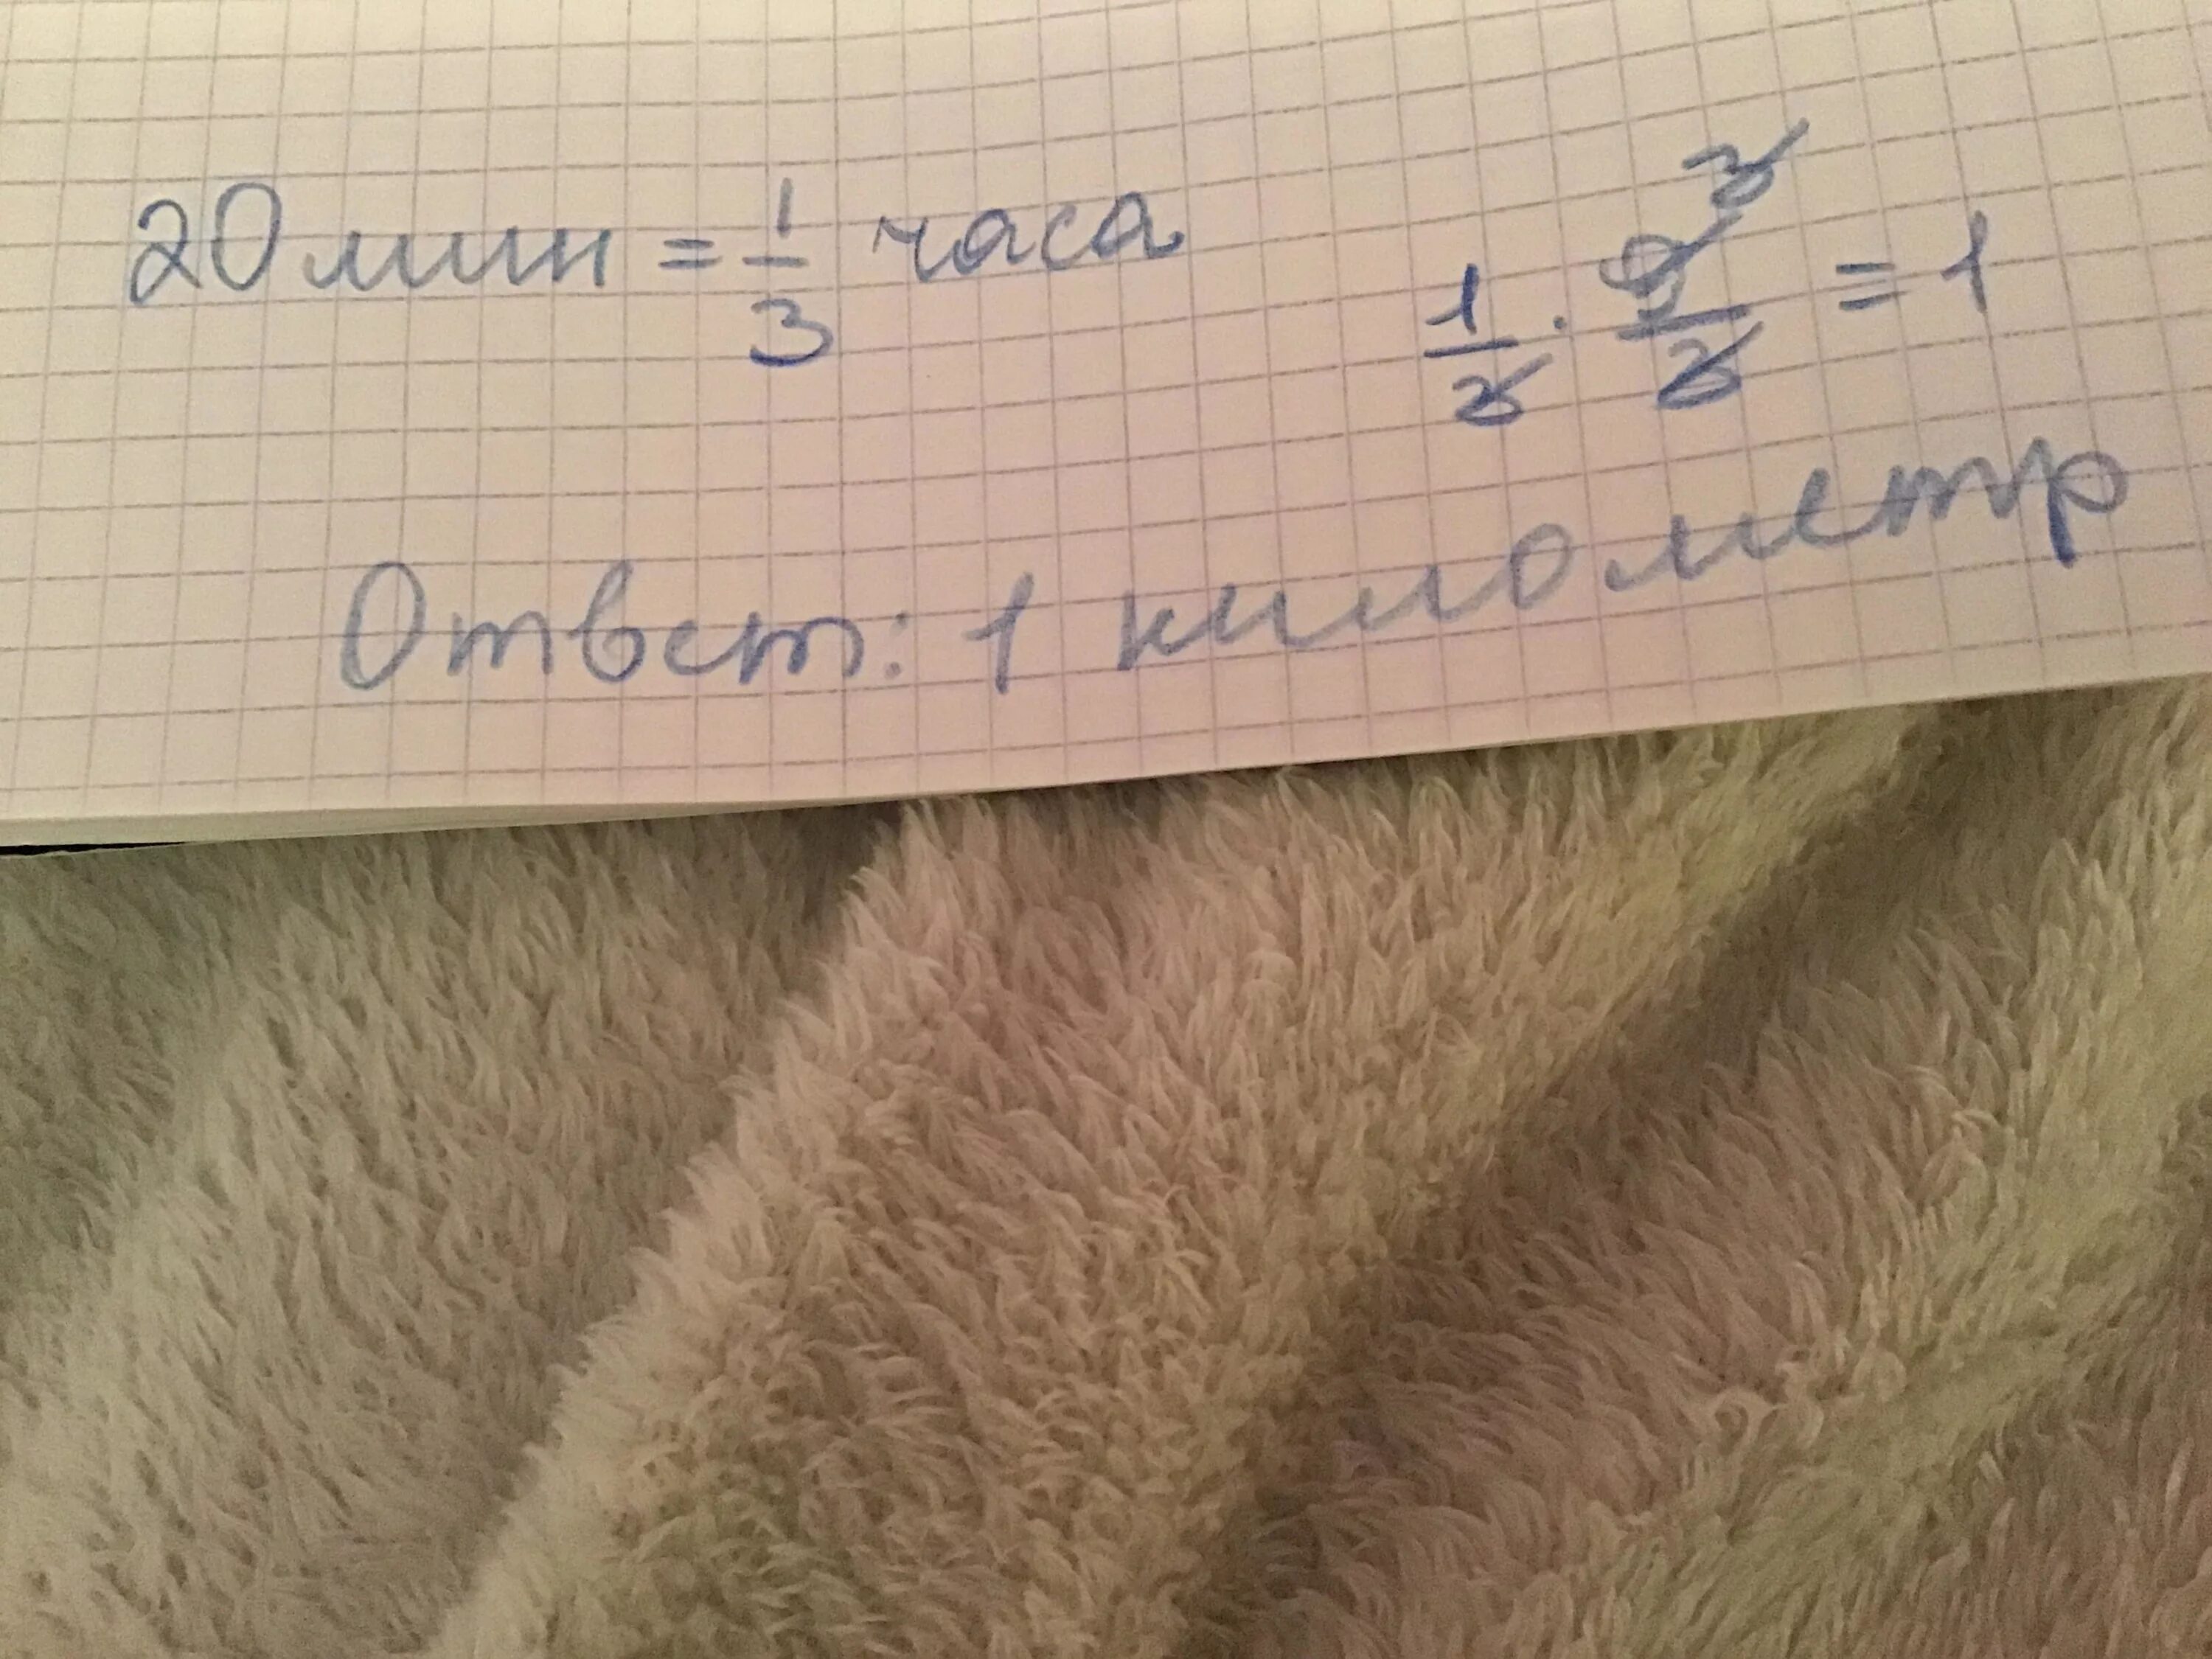 20 мин = 1/3 часа
1/3 · 9/3 = 1
3
Ответ: 1 километр